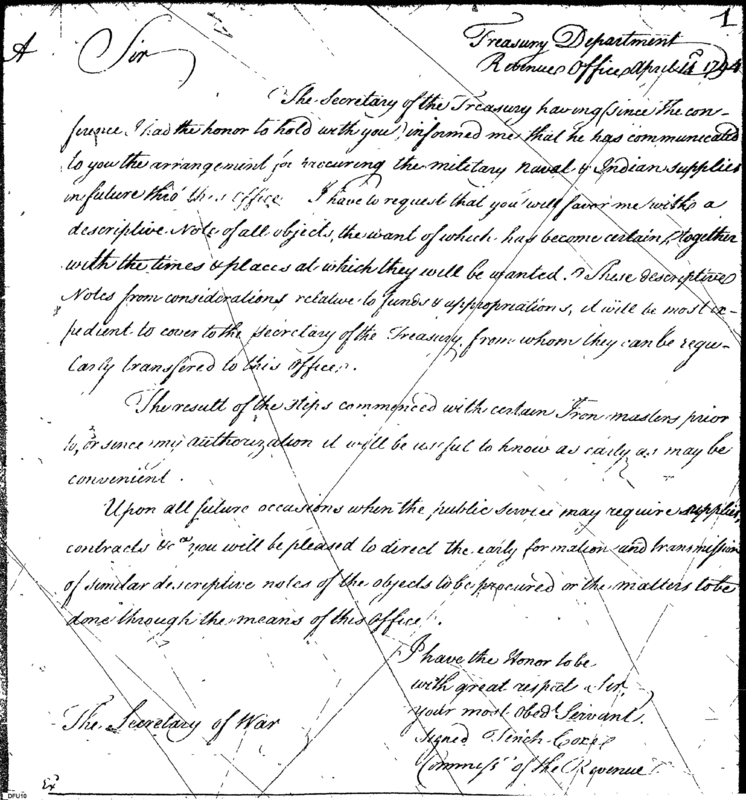 1
A Sir Treasury Department
Revenue Office April 1794
The Secretary of the Treasury having since the con-
ference I had the honor to hold with you, informed me that he has communicated
to you the arrangement for procuring the military naval & Indian supplies
in future thro' this Office. I have to request that you will favor me with a
descriptive Note of all objects, the want of which has become certain, together
with the times & places at which they will be wanted. These descriptive
Notes from considerations, relative to funds & appropriations, it will be most ex-
pedient to cover to the Secretary of the Treasury, from whom they can be regu-
larly transfered to this Office.
The result of the steps commenced with certain Iron masters prior
to, or since my authorization it will be useful to know as early as may be
convenient.
Upon all future occasions when the public service may require supplies,
contracts &ca you will be pleased to direct the early formation and transmission
of similar descriptive notes of the objects to be procured or the matters to be
done through the means of this Office.
I have the Honor to be
with great respect Sir,
your most Obedt Servant.
signed Tench Coxe
Commissr of the Revenue
The Secretary of War
Ex
DFU10